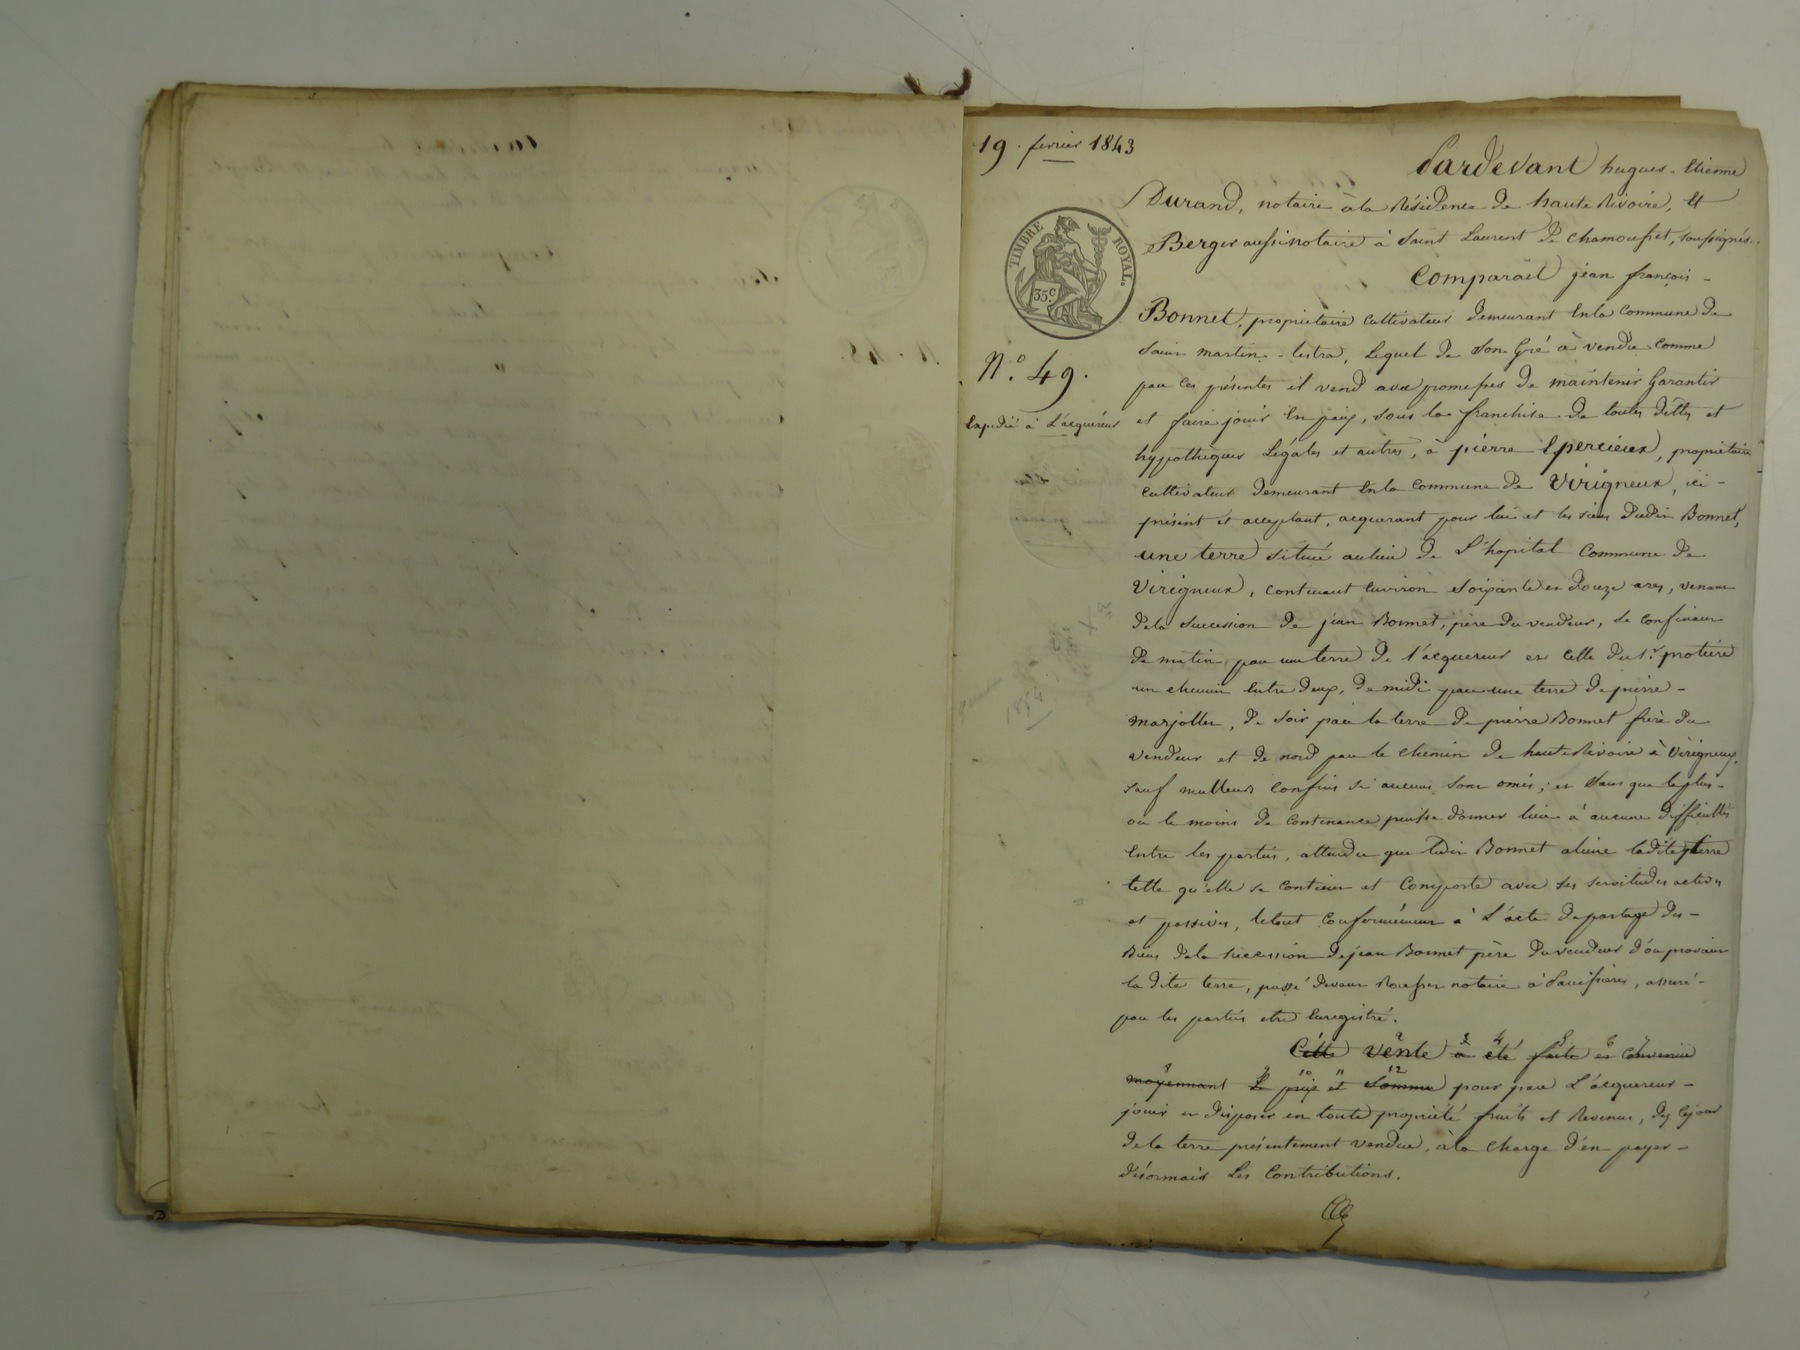 19. fevrier 1843
Pardevant hugues-Etienne
Durand, notaire à la Résidence de haute Rivoire, et
Berger aussi notaire à Saint Laurent de Chamousset, soussignés.
TIMBRE ROYAL.
35 c.
Comparait jean françois-
Bonnet, propriétaire cultivateur demeurant en la commune de
N.° 49.
Saint martin-lestra, Lequel de son Gré à vendu comme
par ces présentes il vend avec promesses de maintenir Garantir
Expédié à L'acquéreur
et faire jouir En paix, sous la franchise de toutes dettes et
hypothèques Légales et autres, à pierre Epercieux, propriétaire
cultivateur demeurant En la commune de Virigneux, ici-
présent et acceptant, acquerant pour lui et les siens dudit Bonnet,
une terre située au lieu de L'hopital Commune de
Virigneux, contenant Environ Soixante et douze ares, venant
de la Succession de jean Bonnet, père du vendeur, se confinant
de matin par une terre de l'acquereur et celle du s.r protière
un chemin Entre deux, de midi par une terre de pierre-
marjollet, de soir par la terre de pierre Bonnet frère du
vendeur et de nord par le chemin de haute Rivoire à Virigneux,
sauf meilleurs confins si aucuns sont omis; et sans que le plus-
ou le moins de contenance puisse donner lieu à aucune difficultés
Entre les parties, attendu que ledit Bonnet aliene ladite terre
telle qu'elle se contient et Comporte avec ses servitudes actives
et passives, le tout conformément à L'acte de partage des-
Biens de la succession de jean Bonnet père du vendeur d'ou provient
la dite terre, passé devant notaire à , assuré-
par les parties etre Enregistré.
Cette vente a été faite et convenue
moyennant le prix et Somme pour par L'acquereur-
jouir et disposer en toute propriété fruits et Revenus, dez ce jour
de la terre présentement vendue, à la charge d'en payer-
désormais Les Contributions.